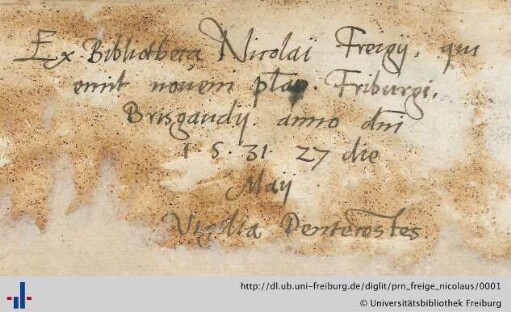 Ex Bibliotheca Nicolai Freigij. qui
emit novem plap. Friburgi.
Brisgaudij. anno dni
1 5. 31. 27 die
Maij
Vigilia Pentecostes
http://dl.ub.uni-freiburg.de/diglit/prn_freige_nicolaus/0001
© Universitätsbibliothek Freiburg